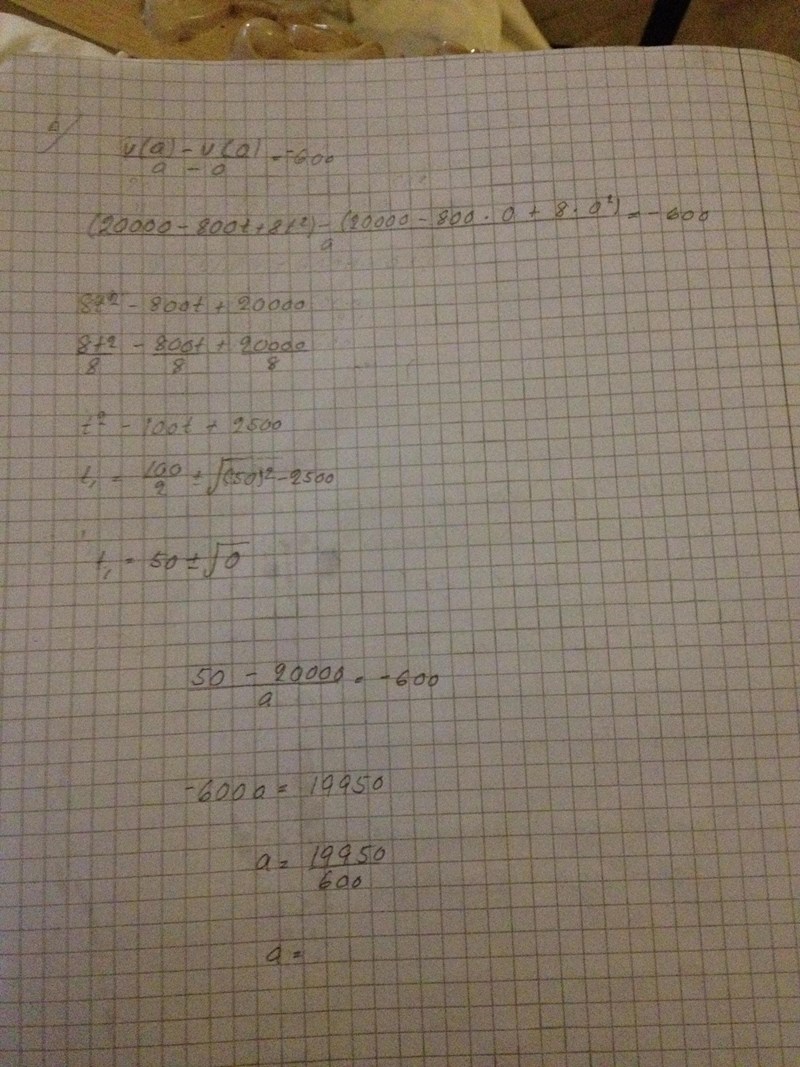 a)
v(a) - v(0) / a - 0 = -600
(20000 - 800t + 8t²) - (20000 - 800 · 0 + 8 · 0²) / a = -600
8t² - 800t + 20000
8t²/8 - 800t/8 + 20000/8
t² - 100t + 2500
t₁ = 100/2 ± √(50)² - 2500
t₁ = 50 ± √0
50 - 20000 / a = -600
-600a = 19950
a = 19950/600
a =